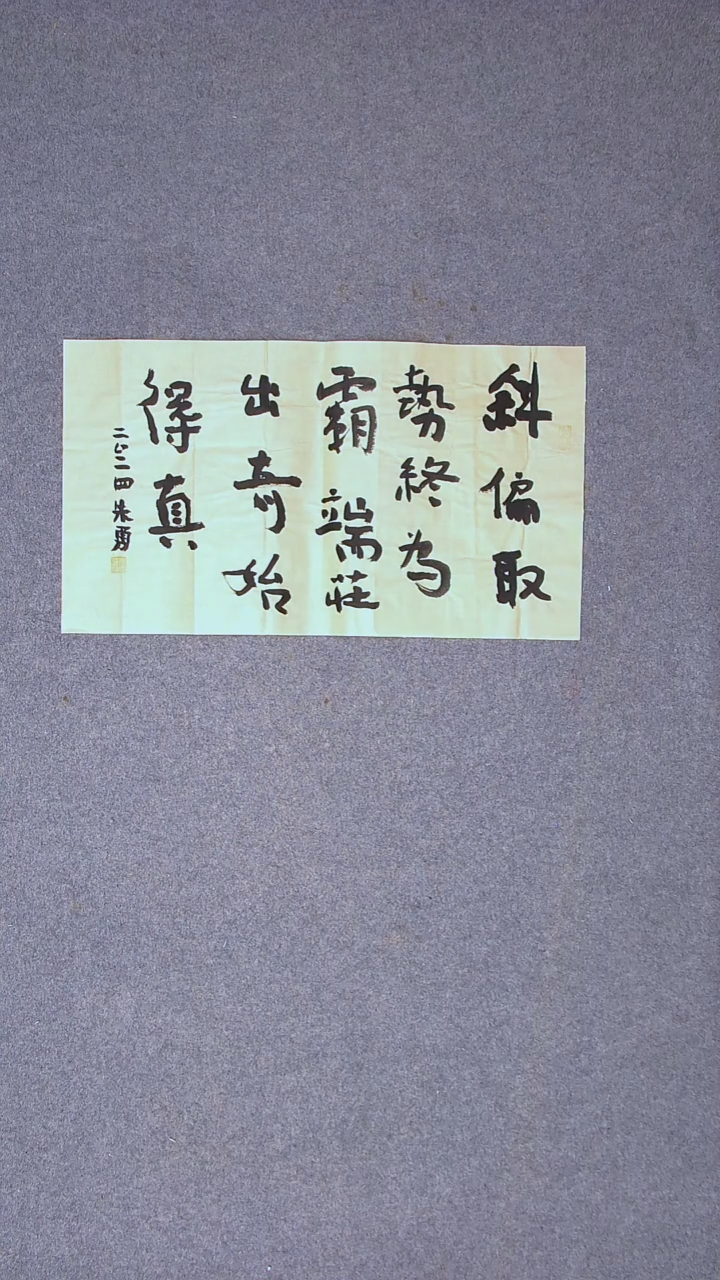 斜偏取
勢終為
霸端莊
出奇始
得真
二〇二四朱勇